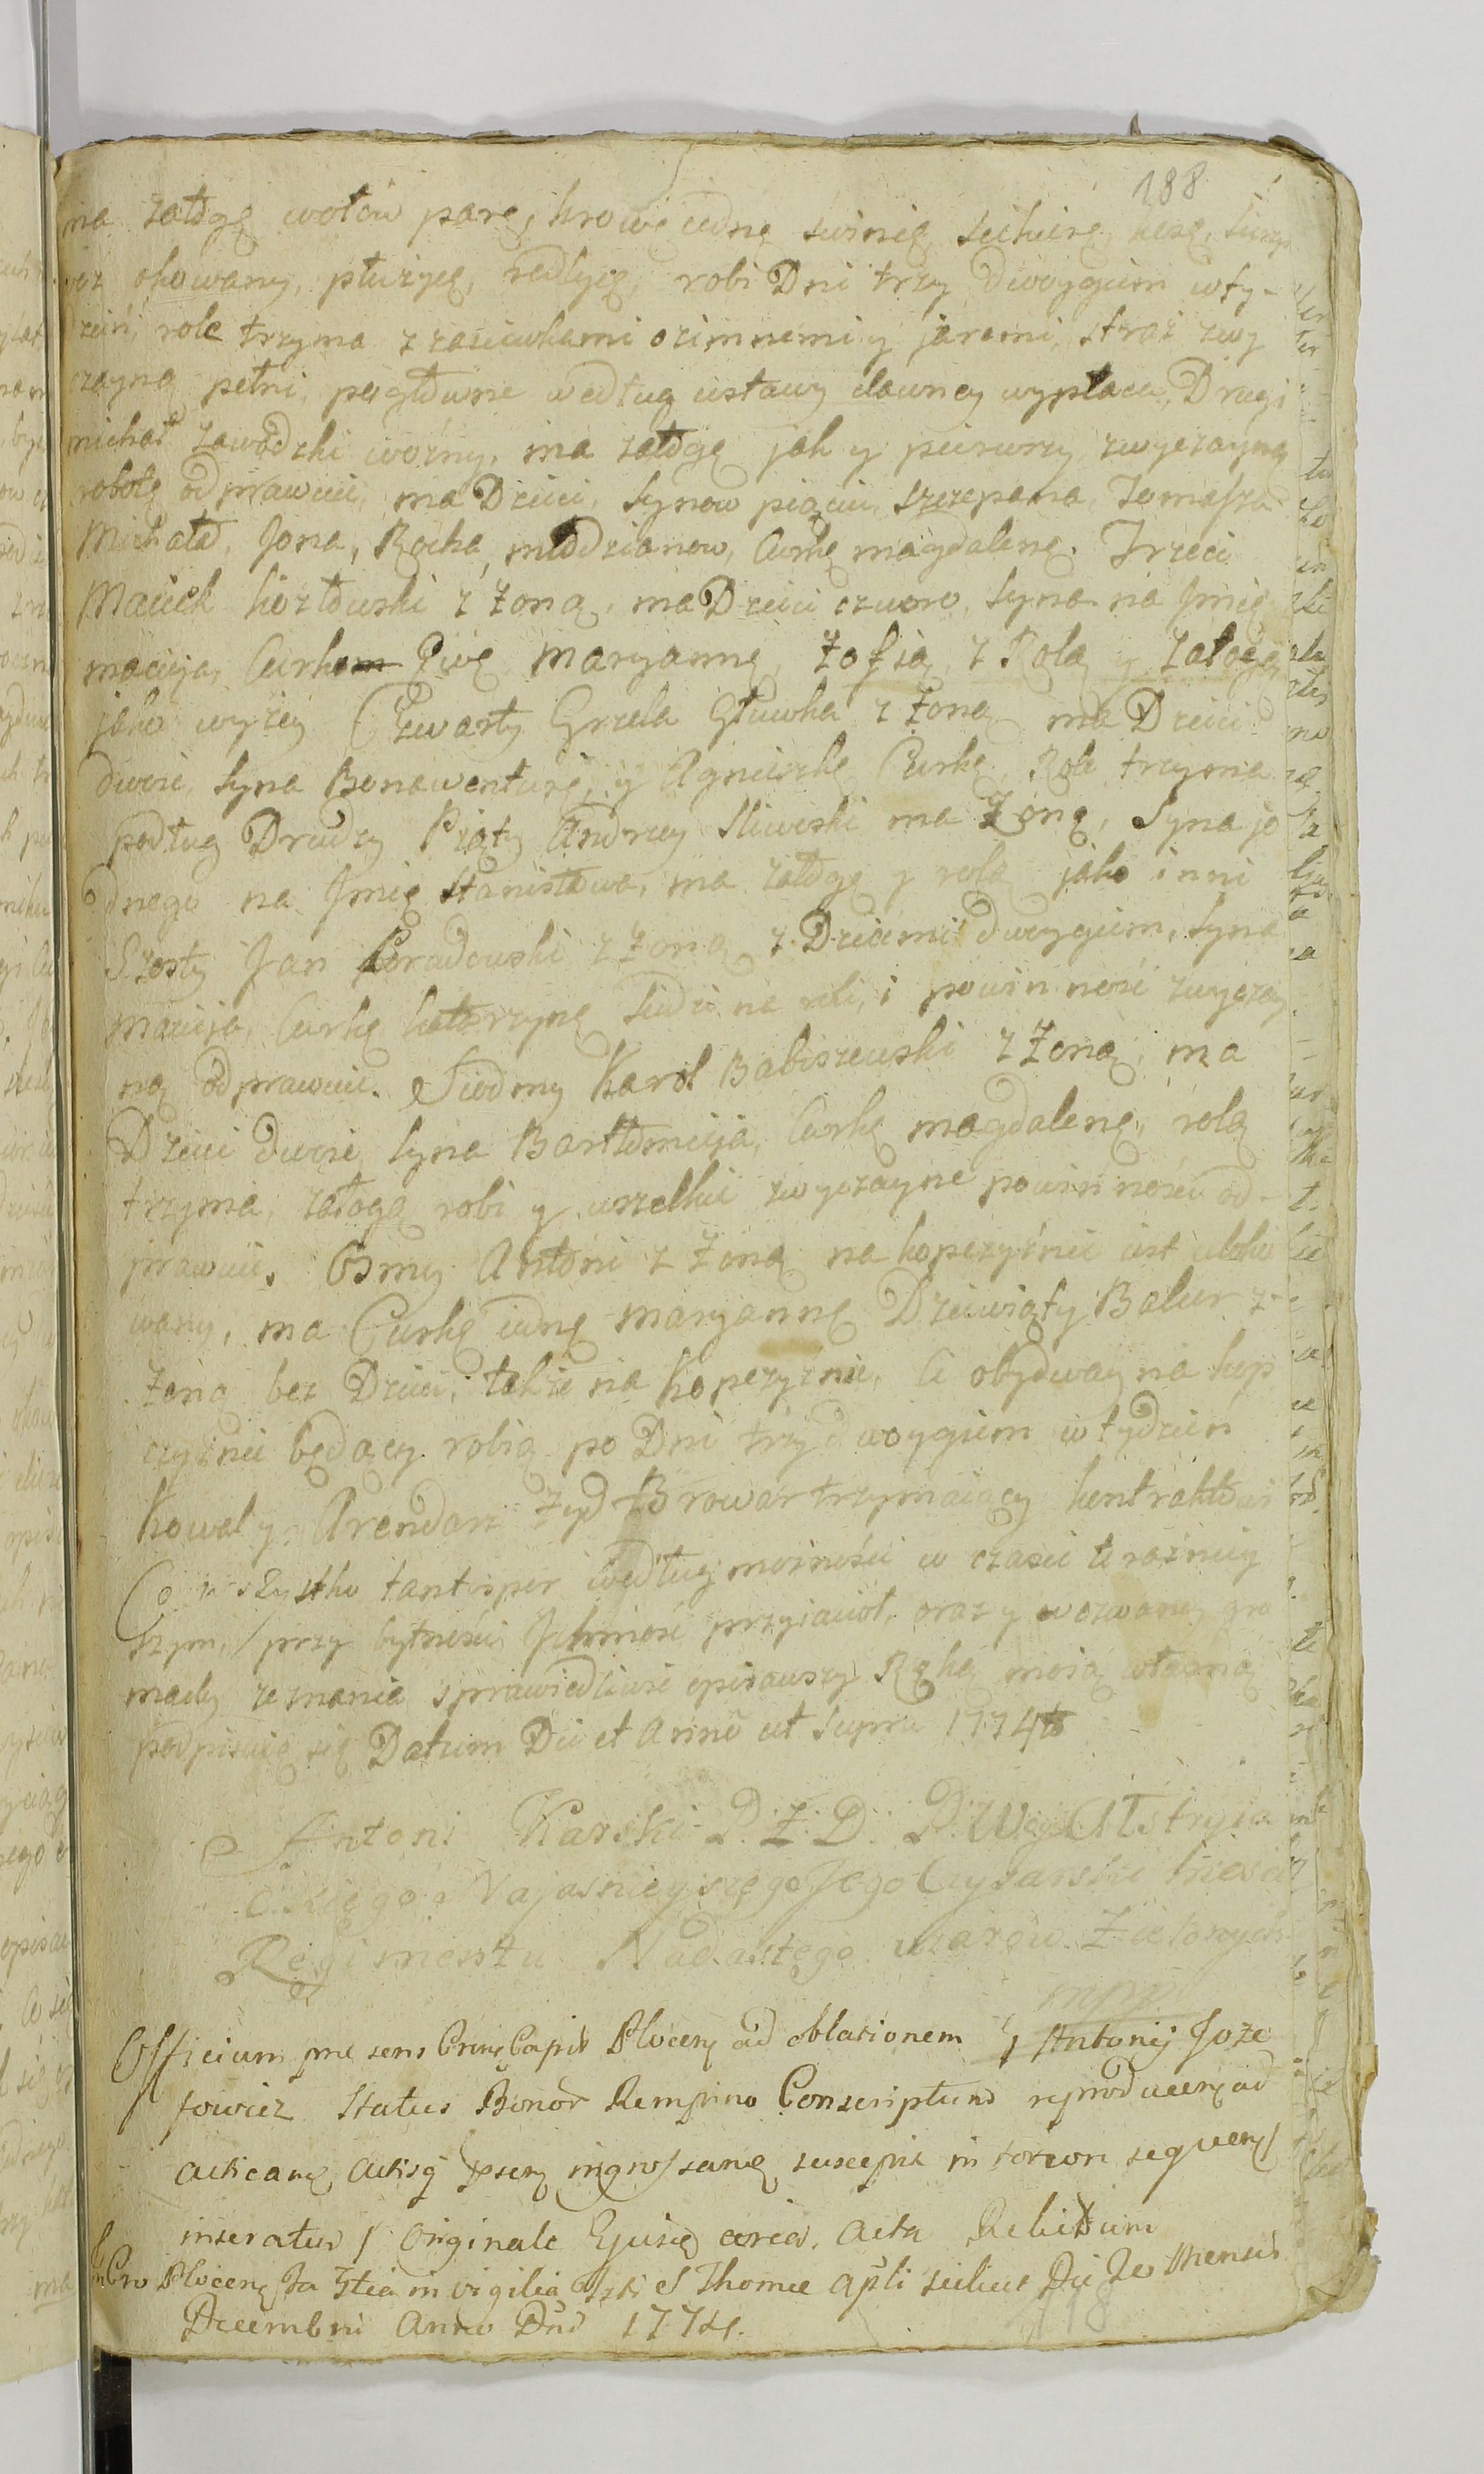 188
ma załogę wołow parę, krowę iednę swinię, siekierę, kosę,
woz okowany, płużycę, redlycę, robi Dni trzy dwoygiem w ty-
dzień, role trzyma z zasiewkami oziemnemi y jaremi, straż zwy
czayną pełni, pogłowne według ustawy dawney wypłaca, Drugi
michał zawadzki wozny, ma załogę jak y pierwszy zwyczayną
robotę odprawuie, ma Dzieci, Synow pięciu, Szczepana, Tomasza
Michała, Jona, Rocha, młodzianow, Curkę magdalenę. Trzeci
Maciek kozłowski z Żoną, ma Dzieci czworo, Syna na Jmię
macieja, Curkom Ewę Maryannę, Zofią, z Rolą y Załogą
jako wyżey Czwarty Grzela Głuwka z Żoną ma Dzieci
dwoie, Syna Bonawenturę, y Agnieszkę Curkę, Role trzyma
podług Drudzy Piąty Andrzey Sliwiski ma Żonę, Syna je
dnego na Jmię Stanisława, ma załogę y rolą jako inni
Szosty Jan Poradowski z Żoną z Dziećmi dwoygiem, Syna
macieja, Curkę katarzynę siedzi na roli, i powinność zwyczay
ną odprawuie. Siodmy Karol Babiszewski z Żoną, ma
Dzieci dwoie, Syna Bartłomieja, Curkę magdalenę, rolą
trzyma, załogą robi y wszelkie zwyczayne powinności od-
prawuie. Osmy Antoni z Żoną na kopczyznie iest uloko
wany, ma Curkę iednę maryannę Dziewiąty Balcer z
Żoną bez Dzieci, także na Kopczyznie, Ci obydway na kop
czyznie będący robią po Dni trzy dwoygiem w tydzień
Kowal y Arendarz Żyd Browar trzymaiący kontraktowi
Co wszystko tantisper według możności w czasie teraźniey
szym, przy bytności Jchmość przyiacioł, oraz y wezwaney gro
mady zeznania sprawiedliwie opisawszy Ręką moią własną
podpisuię się Datum Die et Anno ut supra 1774to
Antoni Karski P. Z. D. P. Woy Austryia
ckiego Nayjasnieyszego Jego Cysarskiei Mości
Regimentu Nadastego uzarow Zielonych
mppr
Officium præsens Crinse Capit Plocens ad oblationem G Antonij Joze
fowicz Status Bonor Rempino Conscriptum reproducens ad
acticand Actisq præsen ingrossand suscepit in tenore sequens
inseratur / Originale Ejusd circa Acta Relictum
in Cro Plocens Fa 3tia in vigilia Fsti S Thomæ Apli scilicet Die 20 Mensis
Decembris Anno Dni 1774.
118